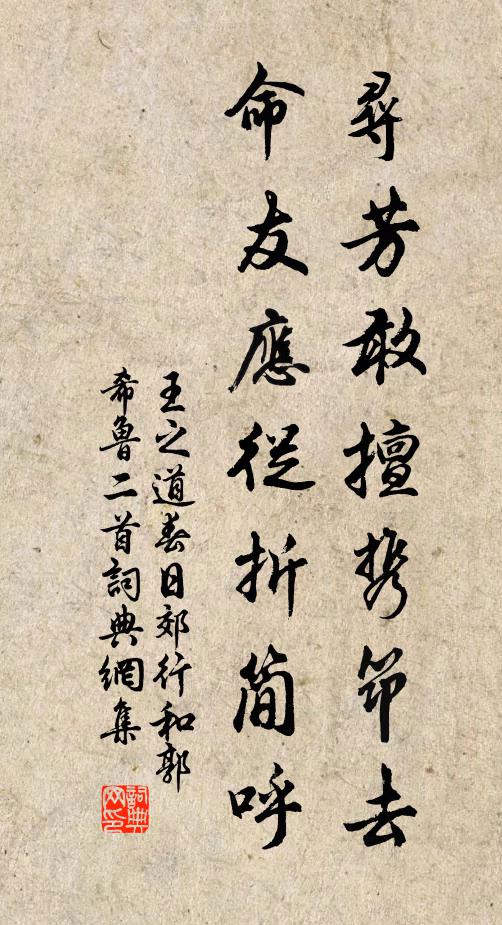 尋芳敢擅携筇去
命友應從折簡呼
王之道春日郊行和郭
希魯二首詞典網集
詞典
网印